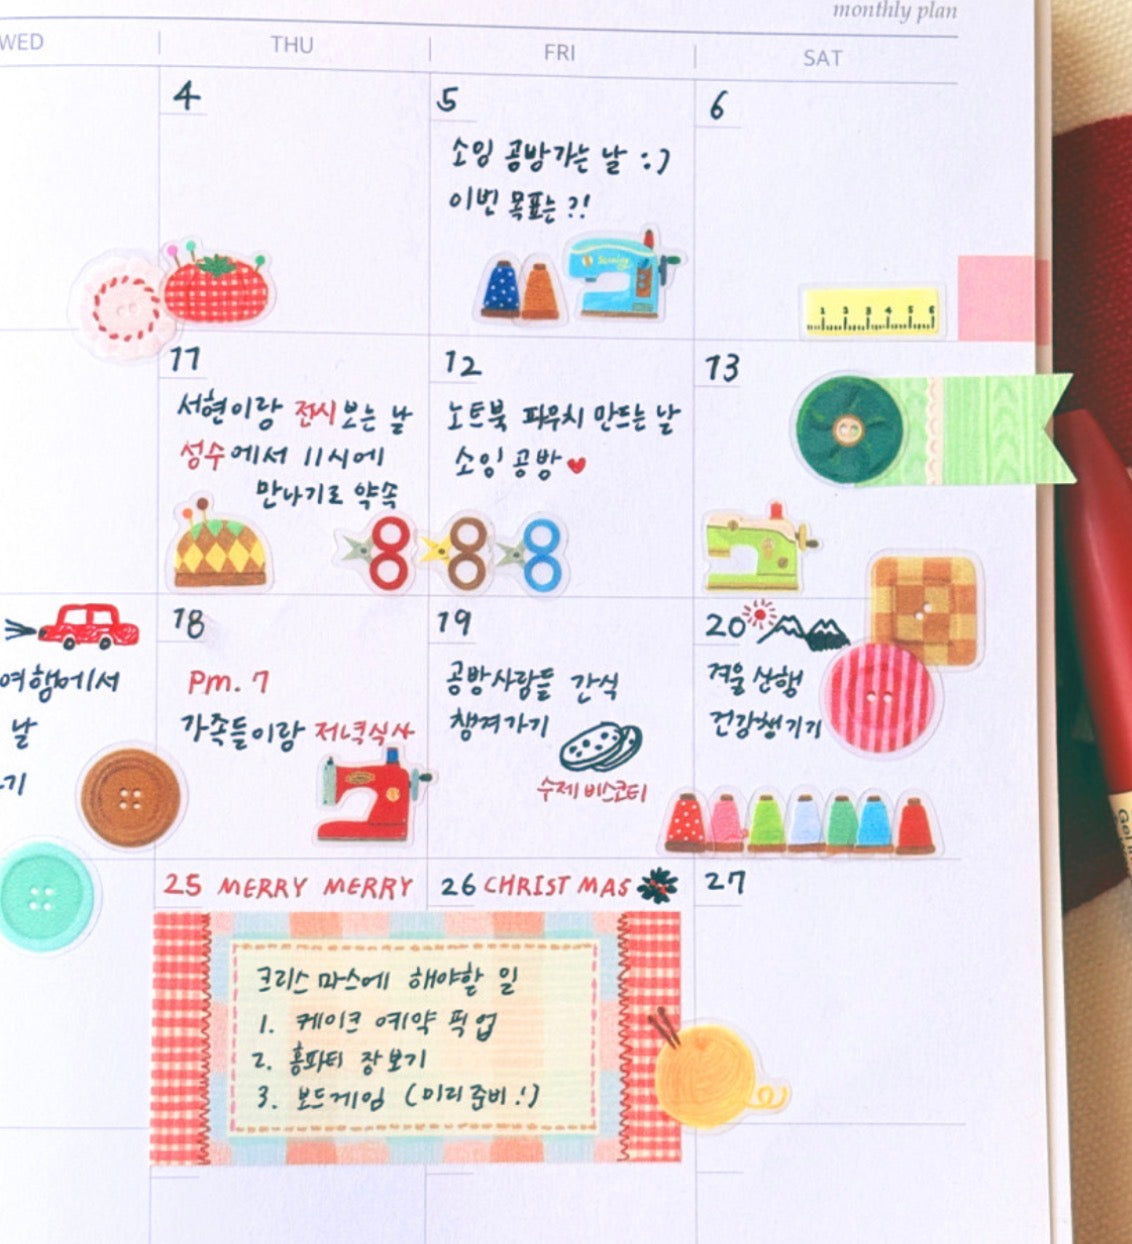 monthly plan
WED THU FRI SAT
4
5
소잉 공방가는 날 :)
이번 목표는?!
Sewing
6
1 2 3 4 5 6
11
서현이랑 전시보는 날
성수에서 11시에
만나기로 약속
12
노트북 파우치 만드는 날
소잉 공방♥
13
여행에서
날
기
18
Pm. 7
가족들이랑 저녁식사
19
공방사람들 간식
챙겨가기
수제 비스코티
20
겨울 산행
건강챙기기
25 MERRY MERRY
26 CHRISTMAS
27
크리스마스에 해야할 일
1. 케이크 예약 픽업
2. 홈파티 장보기
3. 보드게임 (미리 준비!)
Gel